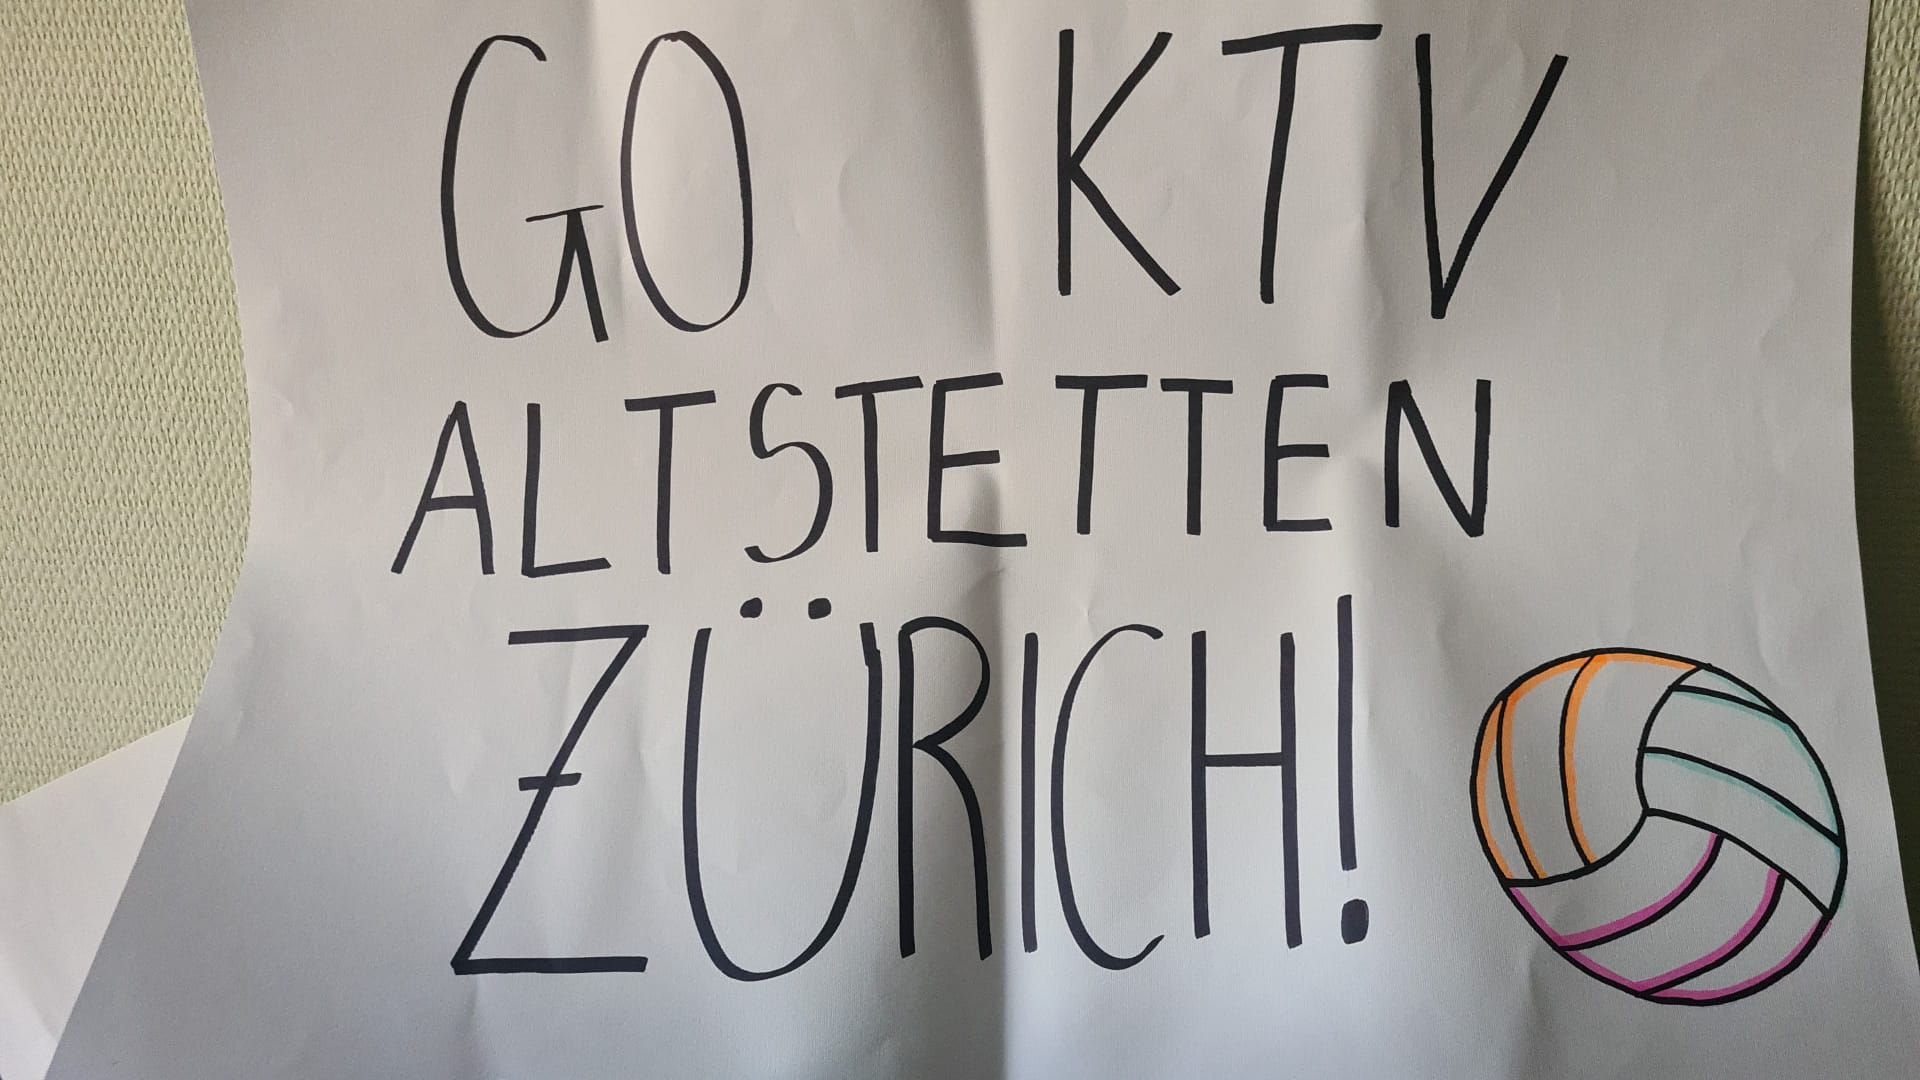 GO KTV
ALTSTETTEN
ZÜRICH!